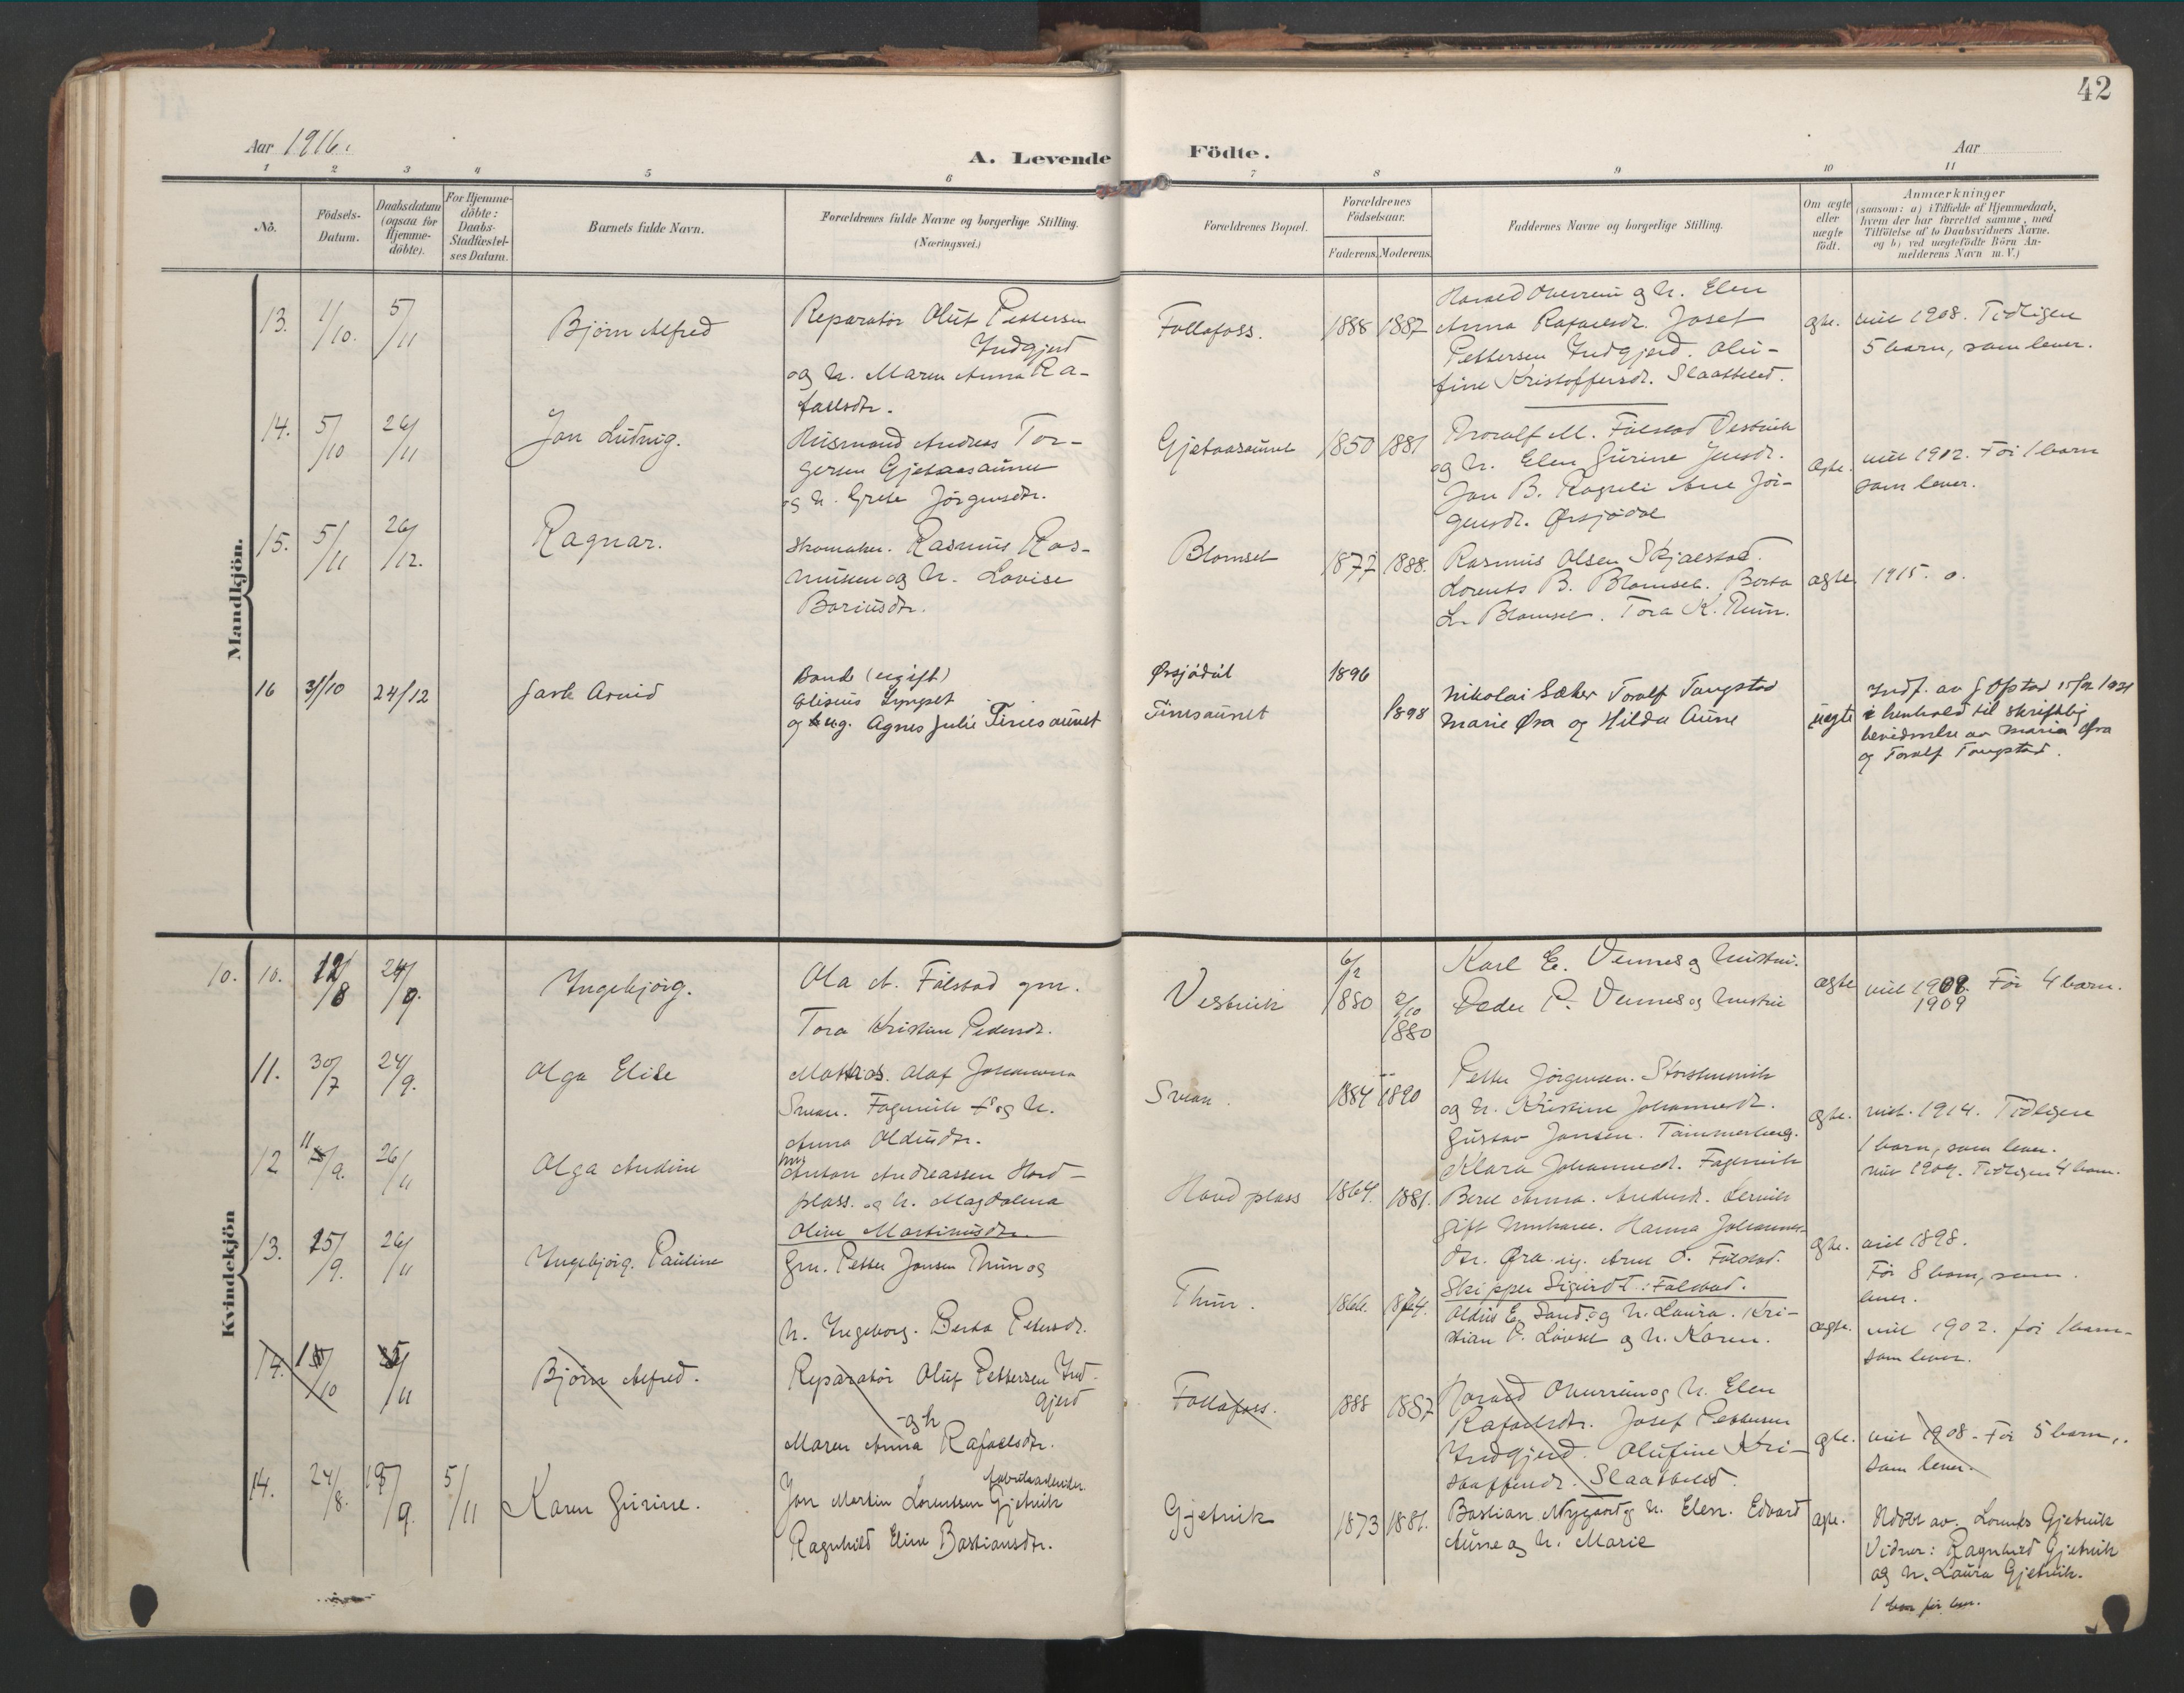 42
Aar 1916.
A. Levende Födte.
Aar
1 2 3 4 5 6 7 8 9 10 11
No.
Födsels-
Datum.
Daabsdatum
(ogsaa for
Hjemme-
döbte).
For Hjemme-
döbte:
Daabs-
Stadfæstel-
ses Datum.
Barnets fulde Navn.
Forældrenes fulde Navne og borgerlige Stilling.
(Næringsvei.)
Forældrenes Bopæl.
Forældrenes
Födselsaar.
Faderens. Moderens.
Faddernes Navne og borgerlige Stilling.
Om ægte
eller
uægte
födt.
Anmærkninger
(saasom: a) i Tilfælde af Hjemmedaab,
hvem der har forrettet samme, med
Tilföielse af to Daabsvidners Navne.
og b) ved uægtefödte Börn An-
melderens Navn m. V.)
Mandkjön.
13. 1/10. 5/11
Bjørn Alfred
Reparatør Oluf Pettersen
Indgjerd
og h. Maren Anna Ra-
faelsdtr.
Follafoss.
1888 1887
Harald Overrein og h. Elen
Anna Rafaelsdr. Josef
Pettersen Indgjerd. Olu-
fine Kristoffersdr. Slaatbled.
gte.
viet 1908. Tidligere
5 barn, som lever.
14. 5/10 26/11
Jon Ludvig.
Husmand Andreas Tor-
gersen Gjetaasaunet
og h. Grete Jørgensdtr.
Gjetaasaunet
1850 1881
Torolf M. Følstad Vestvik
og h. Elen Gurine Jensdr.
Jon B. Ane Jør-
gensdr. Ørsjødal
ægte.
viet 1912. Før 1 barn
som lever.
15. 5/11 26/12.
Ragnar.
Skomaker. Rasmus Ras-
mussen og h. Lovise
Bariusdtr.
Blomset
1877 1888.
Rasmus Olsen Skjaestad.
Lorents B. Blomset. Berta
L. Blomset. Tora K. Thun.
ægte
1915. 0.
16 31/10 24/12
Jarle Arvid
Bonde (ugift)
Elisius Lyngset
og ug. Agnes Julie Tinesaunet
Ørsjødal
Tinesaunet
1896
1898
Nikolai Sæther Toralf Tangstad
Marie Øra og Hilda Aune
uegte
Indf. av J Opstad 15/2 1921
i henhold til skriftlig
bevidnelse av Maria Øra
og Toralf Tangstad.
Kvindekjön
10. 10. 12/8 24/9.
Ingebjørg.
Ola A. Følstad gm.
Tora Kristine Pedersdr.
Vestvik
6/12 1880 2/10 1880
Karl E. Vennes og hustru.
Peder P. Vennes og hustru
ægte
viet 1908. Før 4 barn.
1909
11. 30/7 24/9.
Olga Elise
Mathias Olaf Johannesen
Svean. Fagervik fs og h.
Anna Oldusdtr.
Svean.
1884 1890
Petter Jørgensen. Storstenvik
og h. Kristine Johannesdr.
Gustav Jansen. Tømmerberg.
Klara Johannesdr. Fagervik
ægte.
viet. 1914. Tidligere
1 barn, som lever.
12 11/9. 26/11
Olga Andine
hus
Anton Andreassen Hovd-
plass. og h. Magdalena
Oline Martinusdtr.
Hovdplass
1864. 1881.
Beret Anna. Andersdr. Lervik
gift Hanna Johannes-
dtr. Øra ug. Arne O. Følstad.
Skipper Sigurd T. Følstad.
gte.
viet 1904. Tidligere 4 barn.
13. 15/9. 26/11
Ingebjørg. Pauline
Grm. Petter Jansen Thun og
h. Ingeborg. Berta Petersdr.
Thun.
1866. 1874.
Oldus E. Sand. og h. Laura. Kri-
stian P. Løvset og h. Karen.
ægte.
viet 1898.
Før 8 barn, som
lever.
viet 1902. før 1 barn-
som lever.
14. 1/10 5/11
Bjørn Alfred.
Reparatør Oluf Pettersen Ind-
gjerd
og h
Maren Anna Rafaelsdtr.
Follafoss.
1888 1887
Harald Overrein og h. Elen
Rafaelsdtr. Josef Pettersen
Indgjerd. Olufine Kri-
stoffersdr. Slaatbled.
gte.
viet 1908. Før 5 barn,.
som lever.
14. 24/8. 5/9. 5/11
Karen Gurine.
fabrikarbeider
Jon Martin Lorentsen Gjetvik
Ragnhild Eline Bastiansdtr.
Gjetvik
1873 1881.
Bastian Nygaard og h. Elen. Edvard
Aune og h. Marie
ægte.
Ndöbt av. Lorents Gjetvik
Vidner: Ragnhild Gjetvik
og h. Laura Gjetvik.
1 barn før lever.